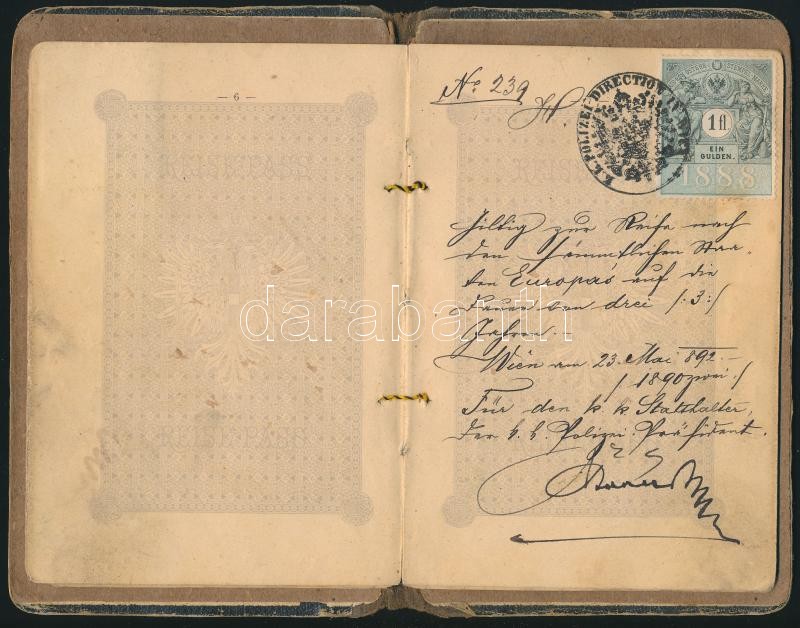 — 6 —
No 239
K. K. POLIZEI-DIRECTION
1 fl.
EIN
GULDEN.
1888
Giltig zur Reise nach
den sämmtlichen Staa-
ten Europas auf die
Dauer von drei /:3:/
Jahren.
Wien am 23. Mai 892.
/1890zwei./
Für den k. k. Statthalter,
Der k. k. Polizei-Präsident.
darabanth